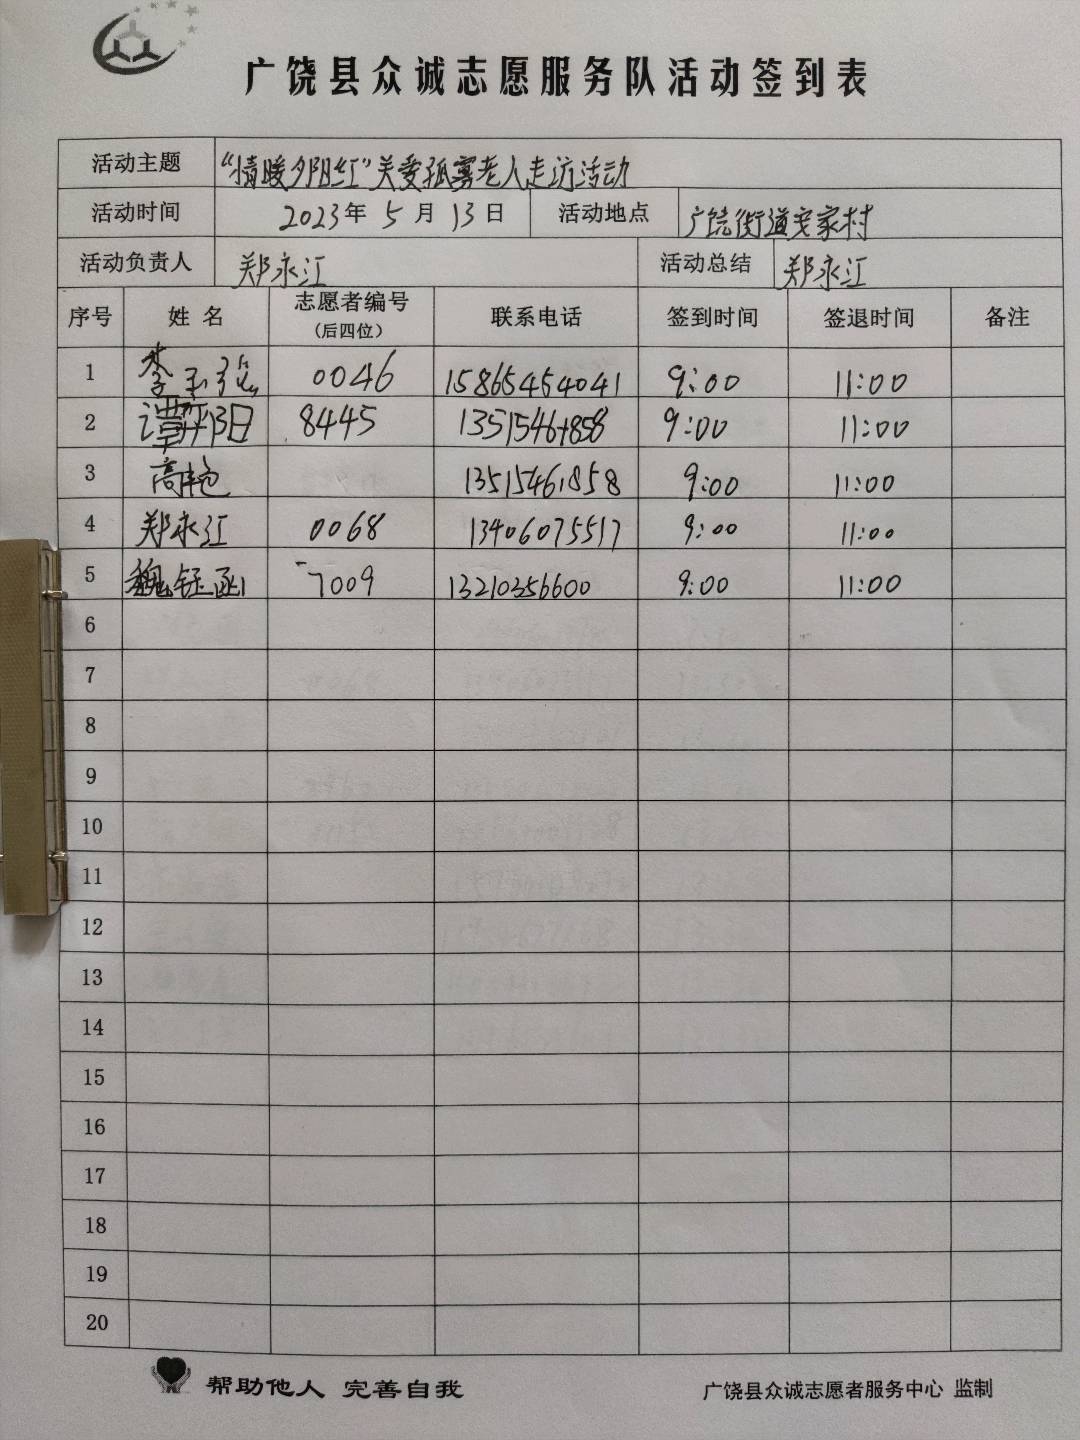 广饶县众诚志愿服务队活动签到表
活动主题 “情暖夕阳红”关爱孤寡老人走访活动
活动时间 2023年 5 月 13 日 活动地点 广饶街道安家村
活动负责人 郑永江 活动总结 郑永江
序号 姓 名 志愿者编号 (后四位) 联系电话 签到时间 签退时间 备注
1 李玉 0046 15865454041 9:00 11:00
2 谭 阳 8445 13515461858 9:00 11:00
3 高艳 13515461858 9:00 11:00
4 郑永江 0068 13406075517 9:00 11:00
5 魏钰函 7009 13210356600 9:00 11:00
6
7
8
9
10
11
12
13
14
15
16
17
18
19
20
帮助他人 完善自我
广饶县众诚志愿者服务中心 监制